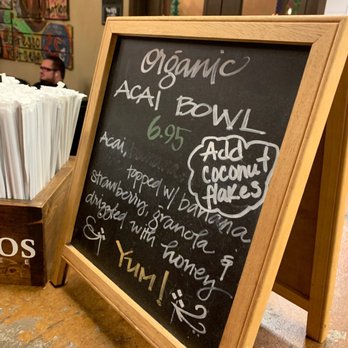 organic
ACAI BOWL
6.95
Add
coconut
flakes
Acai,
topped w/ banana
strawberrys, granola &
drizzled with honey
Yum!
OS